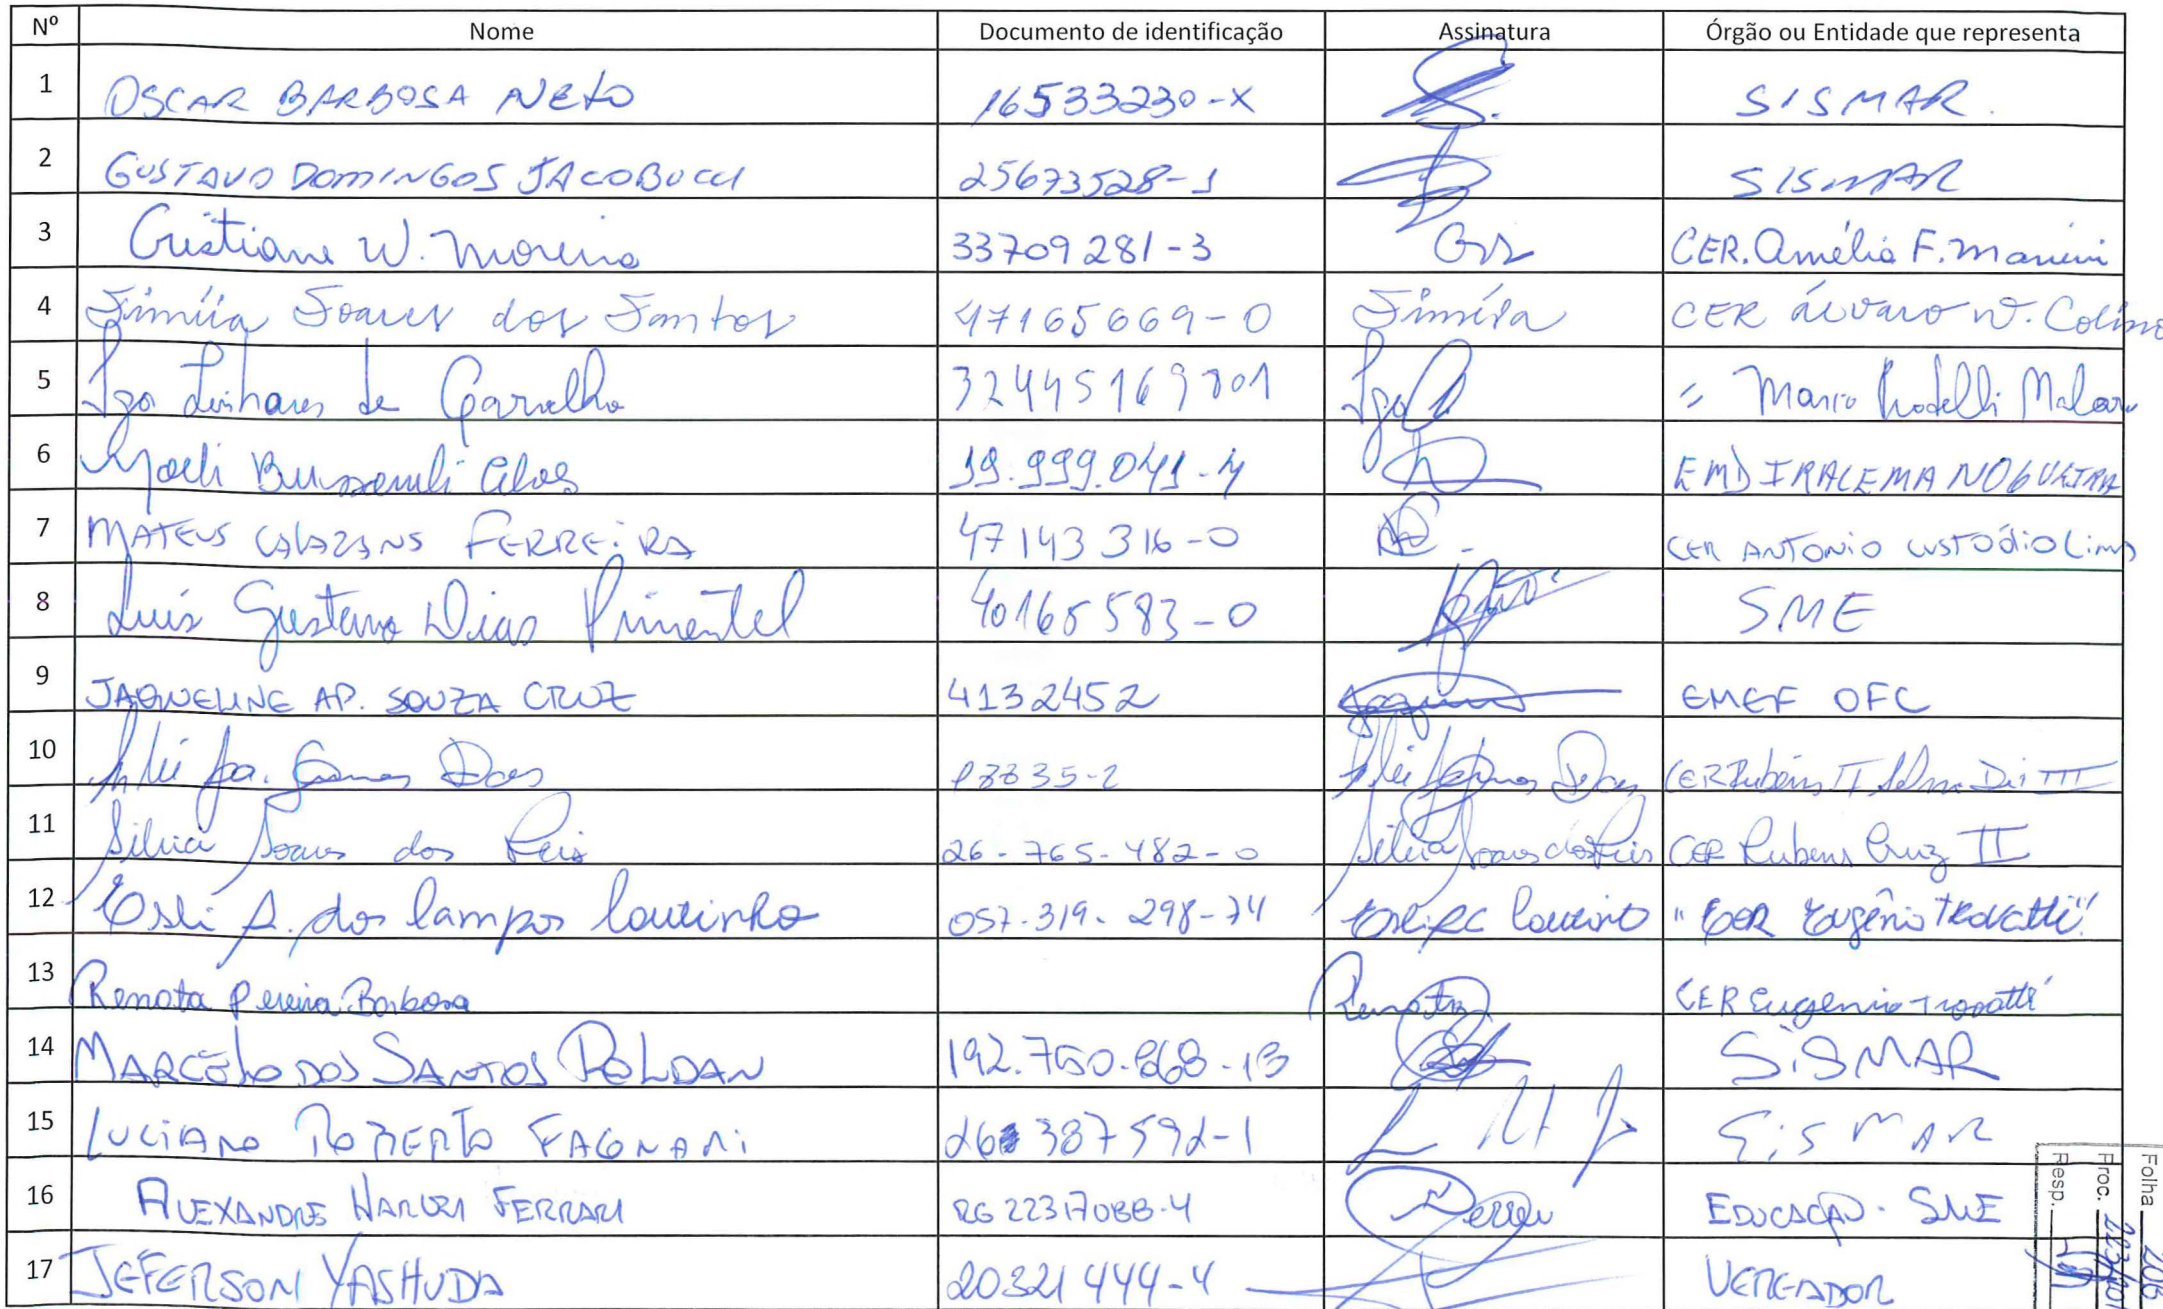 Nº Nome Documento de identificação Assinatura Órgão ou Entidade que representa
1 OSCAR BARBOSA NETO 16533230-X SISMAR.
2 GUSTAVO DOMINGOS JACOBUCCI 25673528-1 SISMAR
3 Cristiane W. Moreira 33709281-3 Cris CER. Amélia F. Manini
4 Siméia Soares dos Santos 47165669-0 Siméia CER Álvaro W. Colino
5 Linhares de Carvalho 32445169801 " Mario
6 Alves 19.999.041-4 EMD IRACEMA NOGUEIRA
7 MATEUS CALAZANS FERREIRA 47143316-0 CER ANTONIO CUSTÓDIO Lima
8 Luís Gustavo Dias Pimentel 40165583-0 SME
9 JAQUELINE AP. SOUZA CRUZ 4132452 EMEF OFC
10 Ap. CER Rubens II III
11 Silvia Soares dos Reis 26-765-482-0 Silvia Soares dos Reis CER Rubens Cruz II
12 Esli A. dos Campos Coutinho 057.319.298-74 Coutinho "CER Eugênio Trovatti"
13 Renata Pereira Barbosa Renata CER Eugenio Trovatti
14 MARCELO DOS SANTOS ROLDAN 192.750.868-13 SISMAR
15 LUCIANO ROBERTO FAGNANI 26387592-1 SISMAR
16 ALEXANDRE FERRARI RG 22317088-4 EDUCAÇÃO - SME
17 JEFERSON YASHUDA 20321444-4 VEREADOR
Folha
Proc.
Resp.